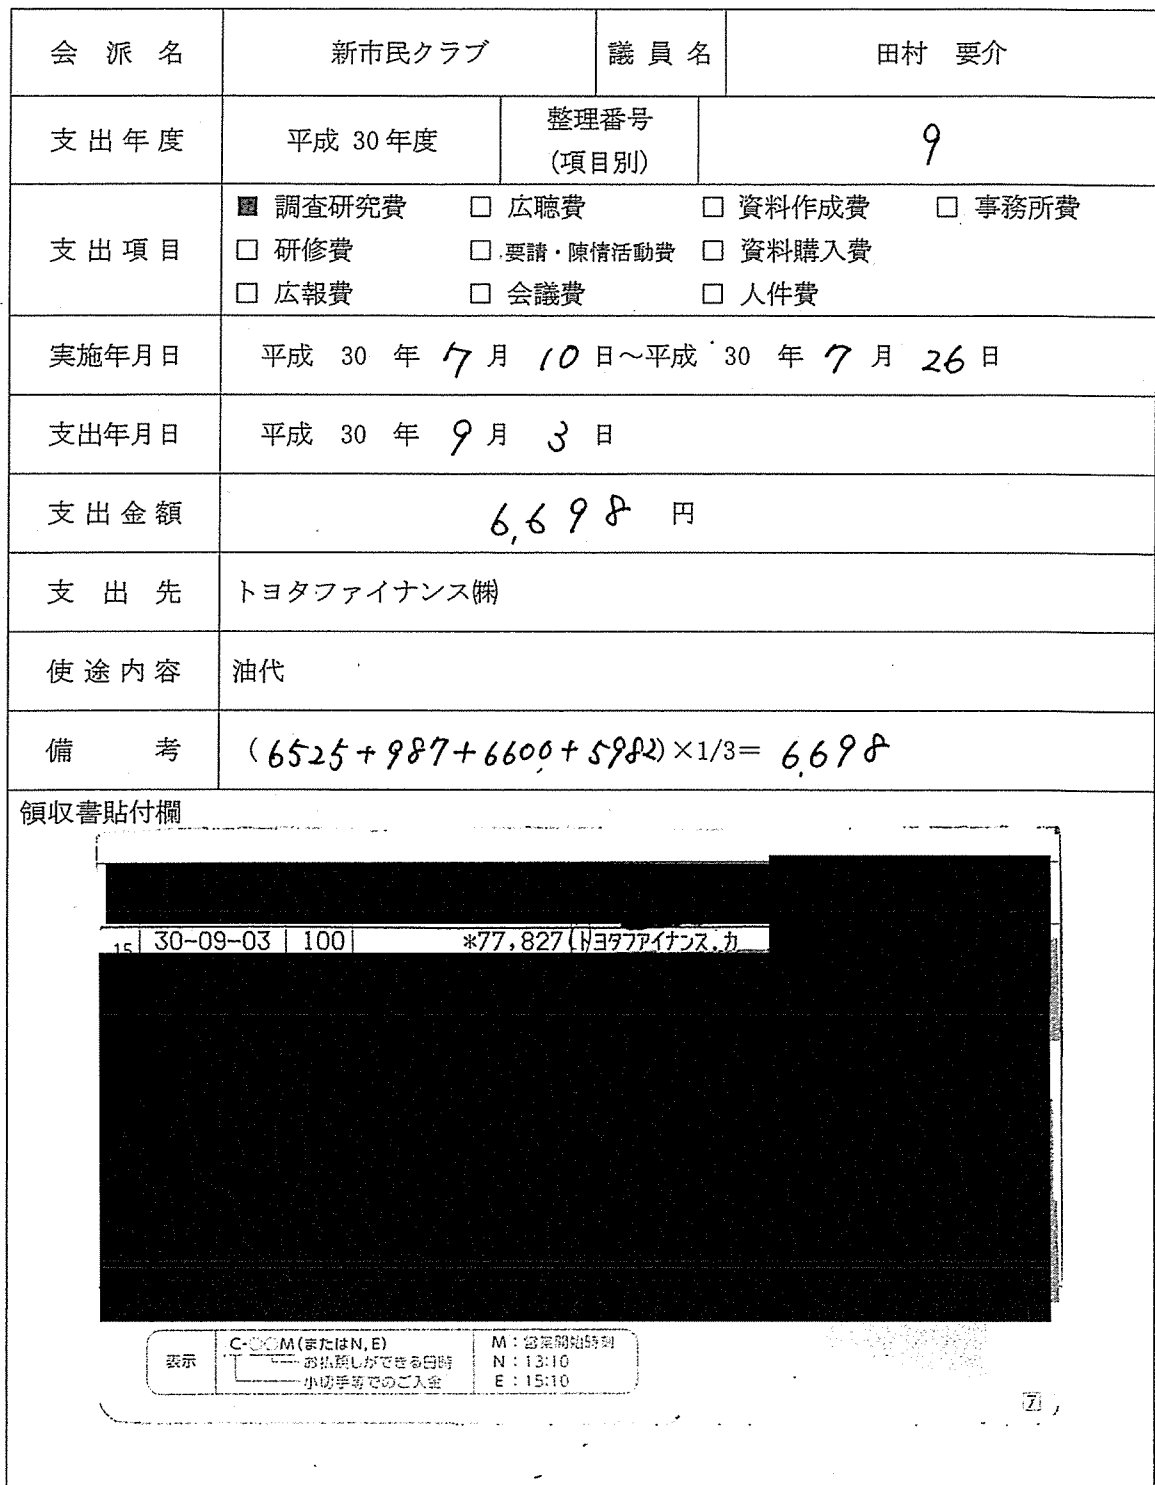 会派名 新市民クラブ 議員名 田村 要介
支出年度 平成 30年度 整理番号(項目別) 9
支出項目 ■ 調査研究費 □ 広聴費 □ 資料作成費 □ 事務所費
□ 研修費 □ 要請・陳情活動費 □ 資料購入費
□ 広報費 □ 会議費 □ 人件費
実施年月日 平成 30 年 7 月 10 日～平成 30 年 7 月 26 日
支出年月日 平成 30 年 9 月 3 日
支出金額 6,698 円
支出先 トヨタファイナンス㈱
使途内容 油代
備考 (6525+987+6600+5982)×1/3= 6,698
領収書貼付欄
15 30-09-03 100 *77,827(トヨタファイナンス.カ
表示 C-○○M(またはN,E) M:営業開始時刻
お払戻しができる日時 N:13:10
小切手等でのご入金 E:15:10
7